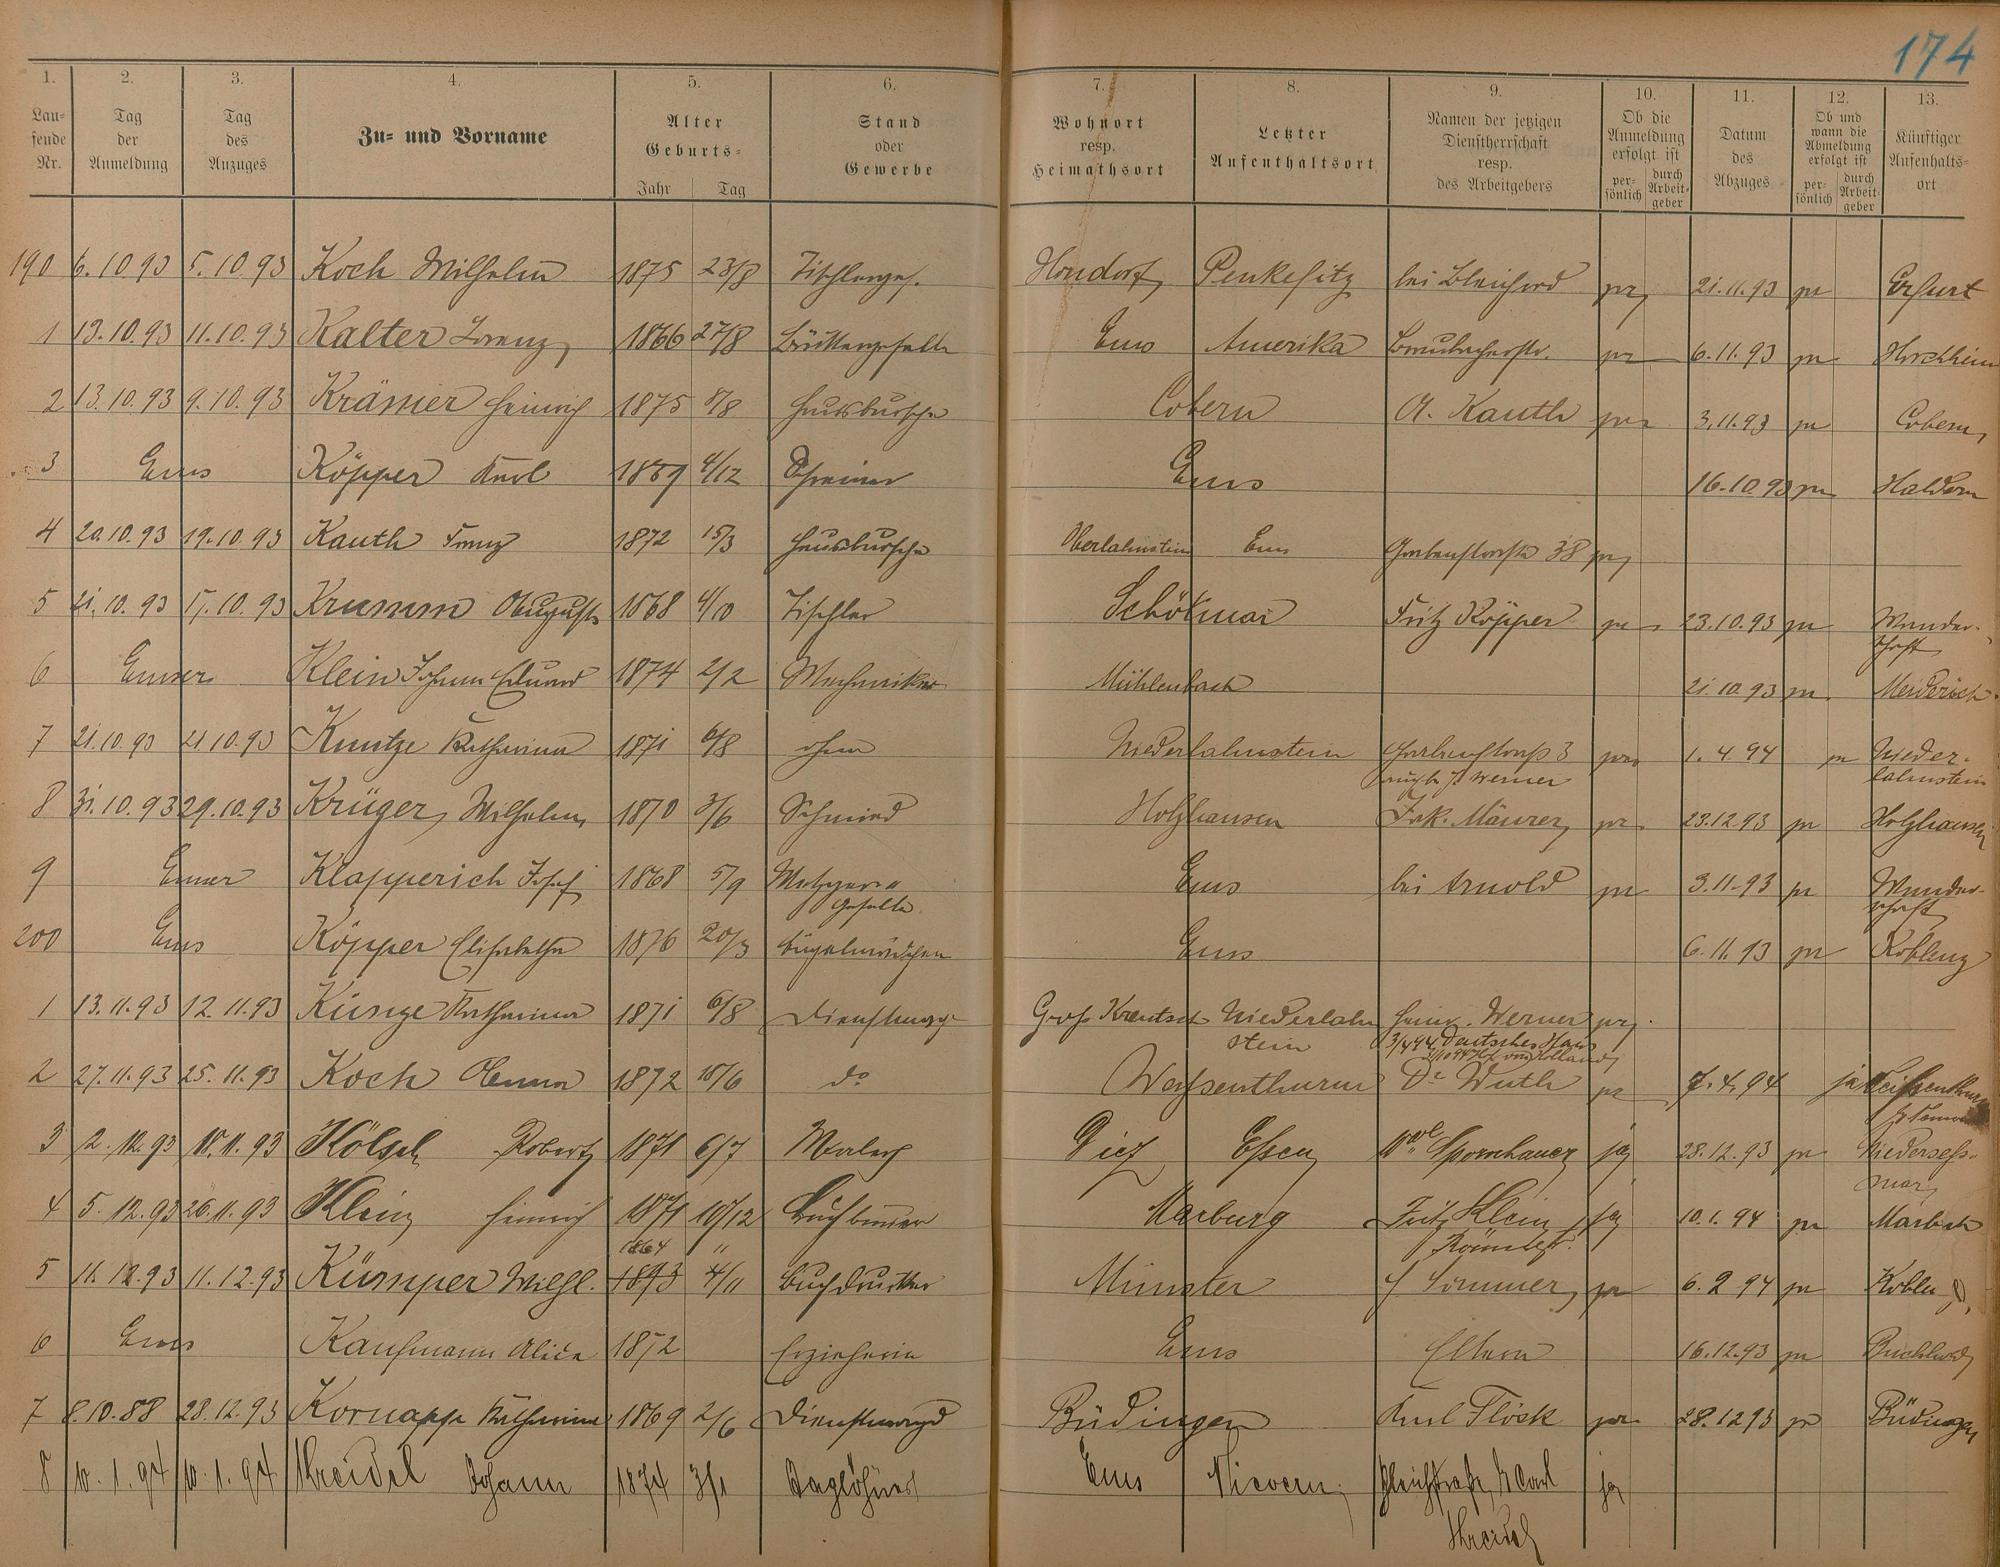 174
1. 2. 3. 4. 5. 6. 7. 8. 9. 10. 11. 12. 13.
Lau-
fende
Nr.
Tag
der
Anmeldung
Tag
des
Anzuges
Zu- und Vorname
Alter
Geburts-
Jahr Tag
Stand
oder
Gewerbe
Wohnort
resp.
Heimathsort
Letzter
Aufenthaltsort
Namen der jetzigen
Dienstherrschaft
resp.
des Arbeitgebers
Ob die
Anmeldung
erfolgt ist
per-
sönlich
durch
Arbeit-
geber
Datum
des
Abzuges
Ob und
wann die
Abmeldung
erfolgt ist
per-
sönlich
durch
Arbeit-
geber
Künftiger
Aufenthalts-
ort
190 6.10.93 5.10.93 Koch Wilhelm 1875 23/8 Tischlerges. Hondorf Penkefitz bei 21.11.93 pr Erfurt
1 13.10.93 11.10.93 Kalter Lorenz 1866 27/8 Ems Amerika pr 6.11.93 pr
2 13.10.93 9.10.93 Krämer Heinrich 1875 8/8 Hausbursche Cobern A. Kauth 3.11.93 pr Cobern
3 Ems Köpper Karl 4/12 Schreiner Ems 16.10.93 pr Haldern
4 20.10.93 19.10.93 Kauth Franz 1872 15/3 Hausbursche Oberlahnstein Ems Grabenstraße 38
5 21.10.93 17.10.93 Krumm August 1868 4/10 Tischler Schötmar Fritz Köpper pr 23.10.93 pr Wander-
schaft
6 Emser Klein Johann Eduard 1874 2/2 Mechaniker Mühlenbach 21.10.93 pr Meiderich
7 21.10.93 21.10.93 Kuntze Katharina 1871 6/8 ohne Niederlahnstein Grabenstraß 3 1.4.94 pr Nieder-
Werner lahnstein
8 31.10.93 29.10.93 Krüger Wilhelm 1870 3/6 Schmied Holzhausen Jak. Mäurer pr 23.12.93 pr Holzhausen
9 Emser Klapperich Josef 1868 5/9 Metzger
Geselle Ems bei Arnold pr 3.11.93 pr Wander-
schaft
200 Ems Köpper Elisabetha 1876 20/3 Bügelmädchen Ems 6.11.93 pr Koblenz
1 13.11.93 12.11.93 Kunze Katharina 1871 6/8 Dienstmagd Groß Niederlahn
stein Heinr. Werner
Deutsches Haus
2 27.11.93 25.11.93 Koch Anna 1872 do Weißenthurm Dr Wuth pr 7.4.94 ja
3 2.12.93 18.11.93 Kölsch Robert 1871 6/7 Diez Essen Spornhauer ja 28.12.93 pr Niederseß-
mar
4 5.12.93 26.11.93 Klein Heinrich 1871 10/12 Buchbinder Marburg Fritz Klein ja 10.1.94 pr
Römerstr.
1864 "
5 11.12.93 11.12.93 Kümper Wilh. 1893 4/11 Buchdrucker Münster Sommer pr 6.2.94 pr Koblenz
6 Ems Kaufmann Alice 1872 Erzieherin Ems Eltern 16.12.93 pr
7 8.10.88 28.12.93 Kornapp Katharina 1869 2/6 Dienstmagd Büdingen Karl Flöck pr 28.12.93 pr Büdingen
8 10.1.94 10.1.94 Kreidel Johann 1874 3/1 Taglöhner Ems Nievern Bleichstraße, b. Carl ja
Kreidel